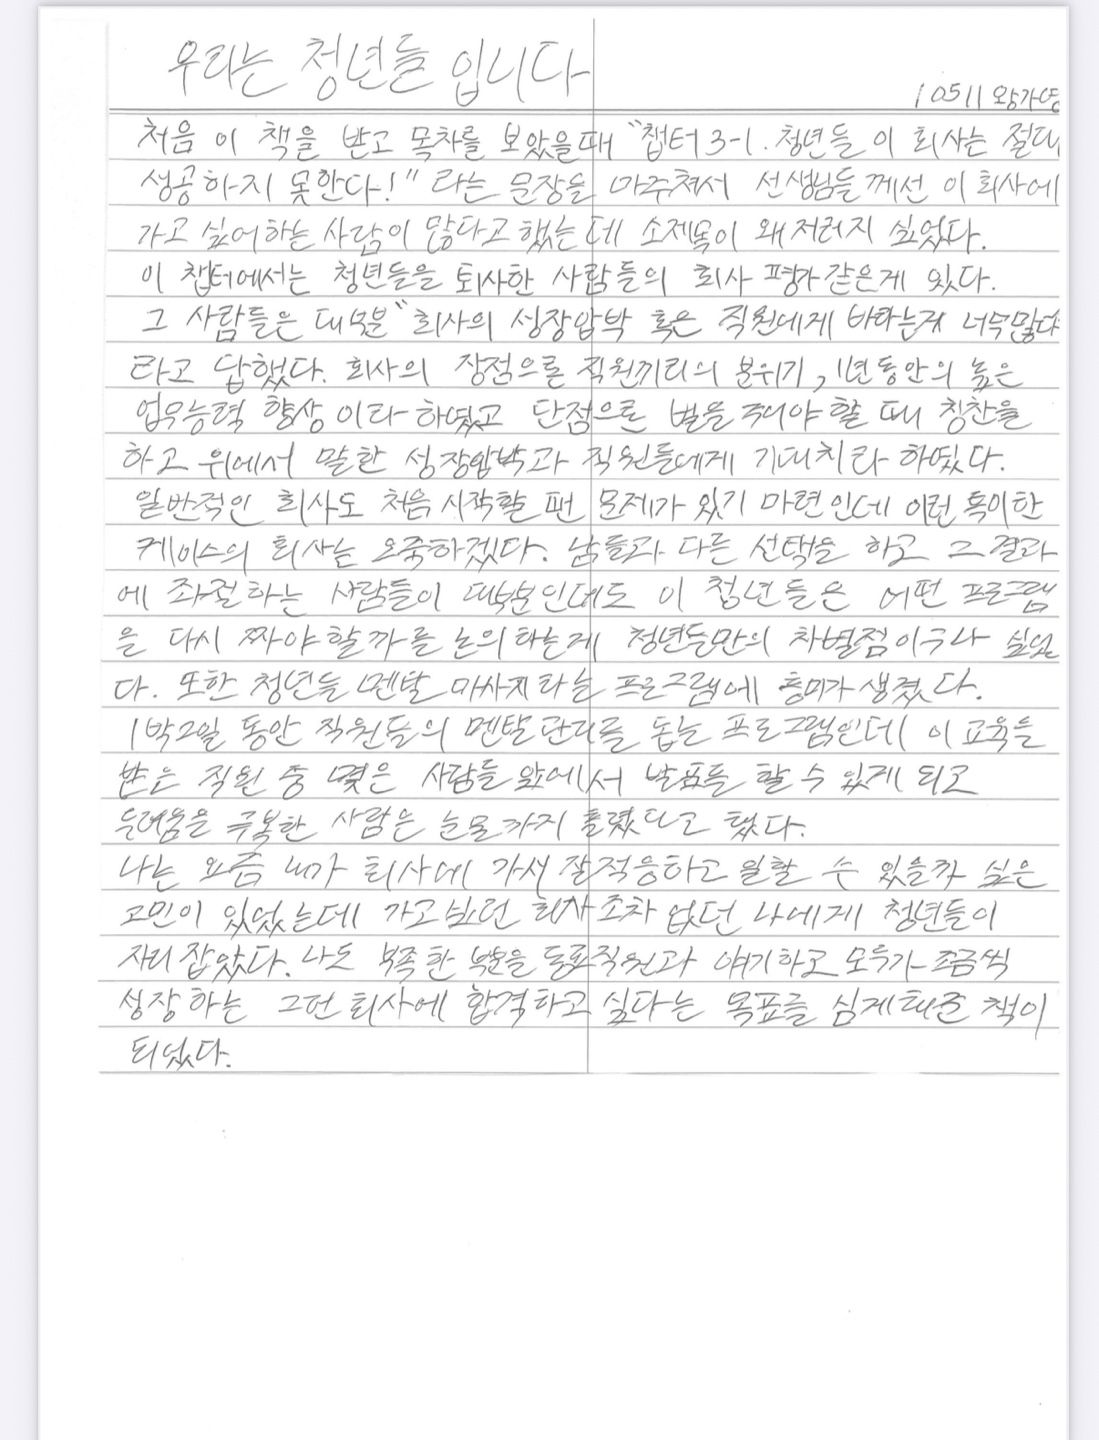 우리는 청년들 입니다
10511 왕가영
처음 이 책을 받고 목차를 보았을때 "챕터3-1. 청년들 이 회사는 절대
성공하지 못한다!" 라는 문장을 마주쳐서 선생님들 께선 이 회사에
가고 싶어하는 사람이 많다고 했는데 소제목이 왜저러지 싶었다.
이 챕터에서는 청년들을 퇴사한 사람들의 회사 평가같은게 있다.
그 사람들은 대부분 "회사의 성장압박 혹은 직원에게 바라는게 너무많다
라고 답했다. 회사의 장점으론 직원끼리의 분위기, 1년동안의 높은
업무능력 향상 이라 하였고 단점으론 벌을 줘야 할 때 칭찬을
하고 위에서 말한 성장압박과 직원들에게 기대치라 하였다.
일반적인 회사도 처음 시작할 땐 문제가 있기 마련인데 이런 특이한
케이스의 회사는 오죽하겠다. 남들과 다른 선택을 하고 그 결과
에 좌절하는 사람들이 대부분인데도 이 청년들은 어떤 프로그램
을 다시 짜야할까를 논의하는게 청년들만의 차별점이구나 싶었
다. 또한 청년들 멘탈 마사지라는 프로그램에 흥미가 생겼다.
1박2일 동안 직원들의 멘탈관리를 돕는 프로그램인데 이 교육을
받은 직원 중 몇은 사람들 앞에서 발표를 할 수 있게 되고
두려움을 극복한 사람은 눈물까지 흘렸다고 했다.
나는 요즘 내가 회사에 가서 잘적응하고 일할 수 있을까 싶은
고민이 있었는데 가고싶던 회사조차 없던 나에게 청년들이
자리 잡았다. 나도 부족한 부분을 동료직원과 얘기하고 모두가 조금씩
성장하는 그런 회사에 합격하고 싶다는 목표를 심게해준 책이
되었다.